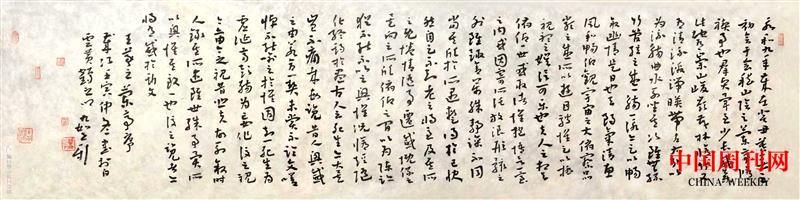 永和九年歲在癸丑暮春之
初會于會稽山陰之蘭亭脩
禊事也群賢畢至少長咸集
此地有崇山峻嶺茂林脩竹又
有清流激湍映帶左右引以
為流觴曲水列坐其次雖無絲
竹管弦之盛一觴一詠亦足以暢
敘幽情是日也天朗氣清惠
風和暢仰觀宇宙之大俯察品
類之盛所以遊目騁懷足以極
視聽之娛信可樂也夫人之相與
俯仰一世或取諸懷抱悟言一室
之內或因寄所託放浪形骸之
外雖趣舍萬殊靜躁不同
當其欣於所遇暫得於己快
然自足不知老之將至及其所
之既倦情隨事遷感慨係之
矣向之所欣俯仰之間以為陳跡
猶不能不以之興懷況脩短隨
化終期於盡古人云死生亦大矣
豈不痛哉每覽昔人興感
之由若合一契未嘗不臨文嗟
悼不能喻之於懷固知一死生為
虛誕齊彭殤為妄作後之視
今亦由今之視昔悲夫故列敘時
人錄其所述雖世殊事異所
以興懷其致一也後之覽者亦
將有感於斯文
王羲之蘭亭序
歲次壬寅仲冬書於
中国周刊网
CHINA WEEKLY